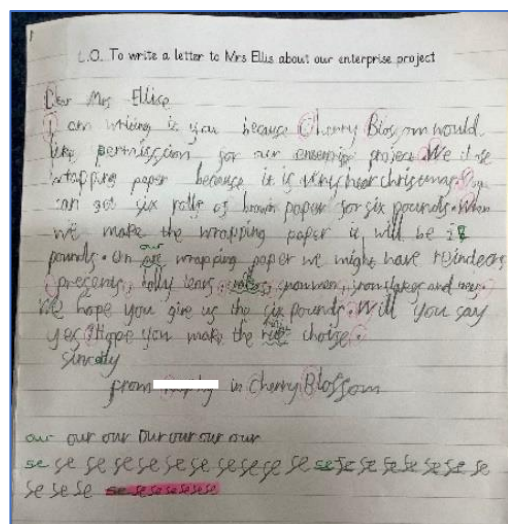 L.O. To write a letter to Mrs Ellis about our enterprise project
Dear Mrs Ellise
I am writing is you because Cherry Blossom would
like permission for our enterprise project. We
wrapping paper because it is very near christmas.
can get six rolls of brown paper for six pounds. When
we make the wrapping paper it will be 18
pounds. On our wrapping paper we might have reindeers
presents, holly leavs, snowmen, snowflakes and
We hope you give us the six pounds. Will you say
yes? Hope you make the choise.
Sincerly
from in Cherry Blossom
our our our our our our our
se se se se se se se se se se se se se se se se se se
se se se se se se se se se